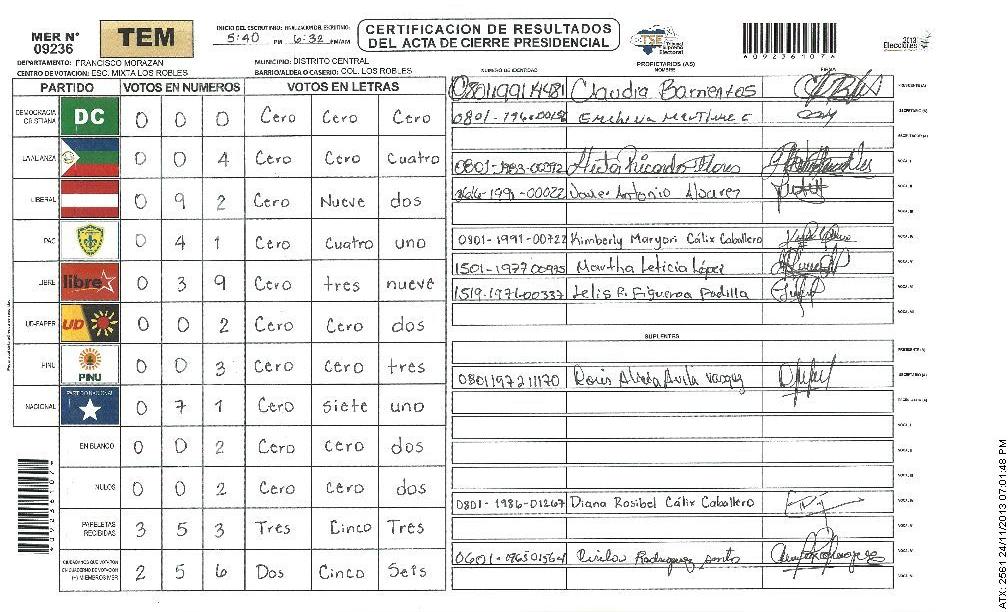 MER N° 09236
TEM
INICIO DEL ESCRUTINIO: FINALIZACION DEL ESCRUTINIO:
5:40 PM 6:32 PM/AM
CERTIFICACION DE RESULTADOS
DEL ACTA DE CIERRE PRESIDENCIAL
TSE Tribunal Supremo Electoral
*09236107*
2013 Elecciones
DEPARTAMENTO: FRANCISCO MORAZAN MUNICIPIO: DISTRITO CENTRAL
CENTRO DE VOTACION: ESC. MIXTA LOS ROBLES BARRIO/ALDEA O CASERIO: COL. LOS ROBLES
PROPIETARIOS (AS)
NUMERO DE IDENTIDAD NOMBRE FIRMA
PARTIDO VOTOS EN NUMEROS VOTOS EN LETRAS
DEMOCRACIA CRISTIANA DC 0 0 0 Cero Cero Cero
LA ALIANZA 0 0 4 Cero Cero Cuatro
LIBERAL 0 9 2 Cero Nueve dos
PAC 0 4 1 Cero Cuatro uno
LIBRE libre 0 3 9 Cero tres nueve
UD-FAPER UD 0 0 2 Cero Cero dos
PINU PINU 0 0 3 Cero Cero tres
NACIONAL PARTIDO NACIONAL 0 7 1 Cero siete uno
EN BLANCO 0 0 2 Cero Cero dos
NULOS 0 0 2 Cero Cero dos
PAPELETAS RECIBIDAS 3 5 3 Tres Cinco Tres
CIUDADANOS QUE VOTARON EN CUADERNO DE VOTACION (+) MIEMBROS MER 2 5 6 Dos Cinco Seis
Claudia Barrientos PRESIDENTE (A)
SECRETARIO (A)
ESCRUTADOR (A)
Ricardo Flores VOCAL I
Javier Antonio Alvarez VOCAL II
VOCAL III
0801-1991-00722 Kimberly Maryori Cálix Caballero VOCAL IV
1501-1977 00975 Martha Leticia López VOCAL V
1519-1971-00337 Lelis R. Figueroa Padilla VOCAL VI
VOCAL VII
SUPLENTES
PRESIDENTE (A)
Doris Avila SECRETARIO (A)
ESCRUTADOR (A)
VOCAL I
VOCAL II
VOCAL III
0801-1986-01267 Diana Rosibel Cálix Caballero VOCAL IV
VOCAL V
Rodriguez VOCAL VI
VOCAL VII
*09236107*
ATX: 2561 24/11/2013 07:01:48 PM